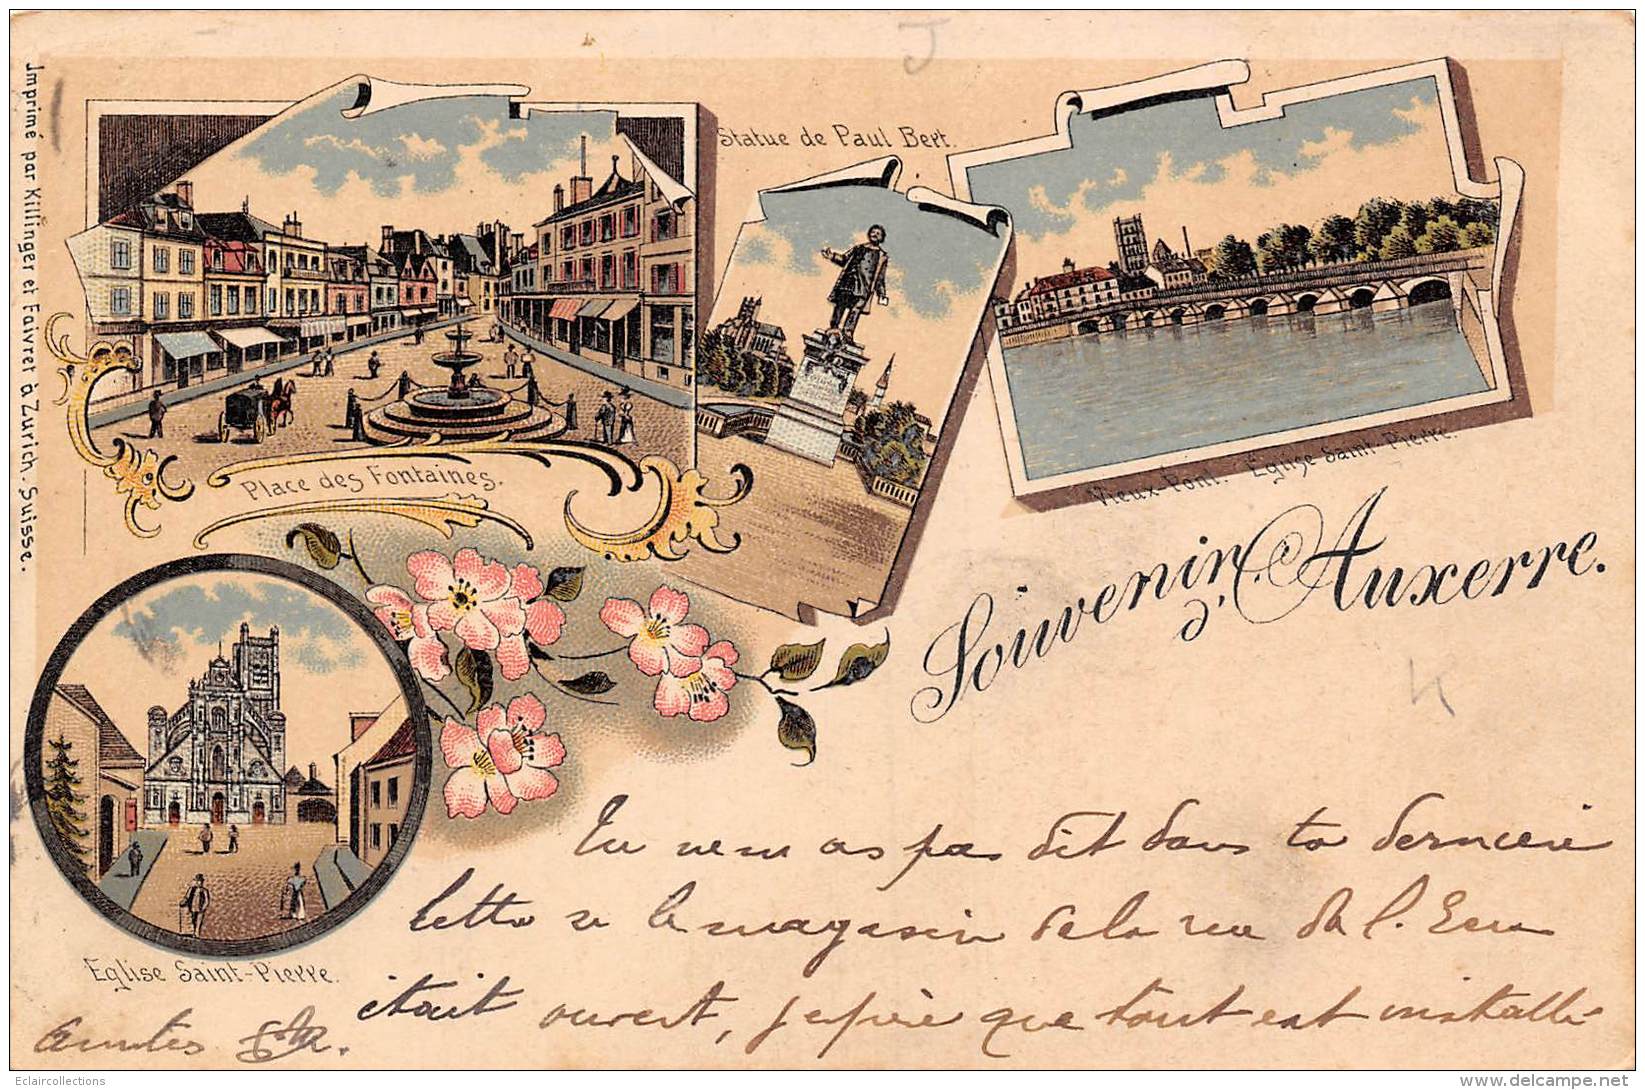 Imprimé par Killinger et Faivrer à Zurich. Suisse.
Statue de Paul Bert.
Place des Fontaines.
Vieux-Pont. Eglise Saint-Pierre.
Souvenir d'Auxerre.
Eglise Saint-Pierre.
Tu ne m as pas dit dans ta derniere
lettre si le magasin de la rue de l.
était ouvert, j'espère que tout est installé
Amitiés
Eclaircollections
www.delcampe.net